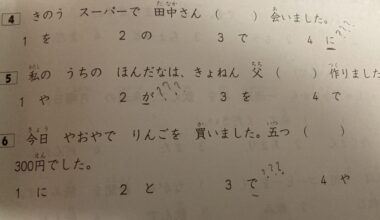 4 きのう スーパーで 田中さん ( ) 会いました。
1 を 2 の 3 で 4 に ???
5 私の うちの ほんだなは、きょねん 父 ( ) 作りました
1 や 2 が ??? 3 を 4 で
6 今日 やおやで りんごを 買いました。五つ ( )
300円でした。
1 に 2 と 3 で ??? 4 や